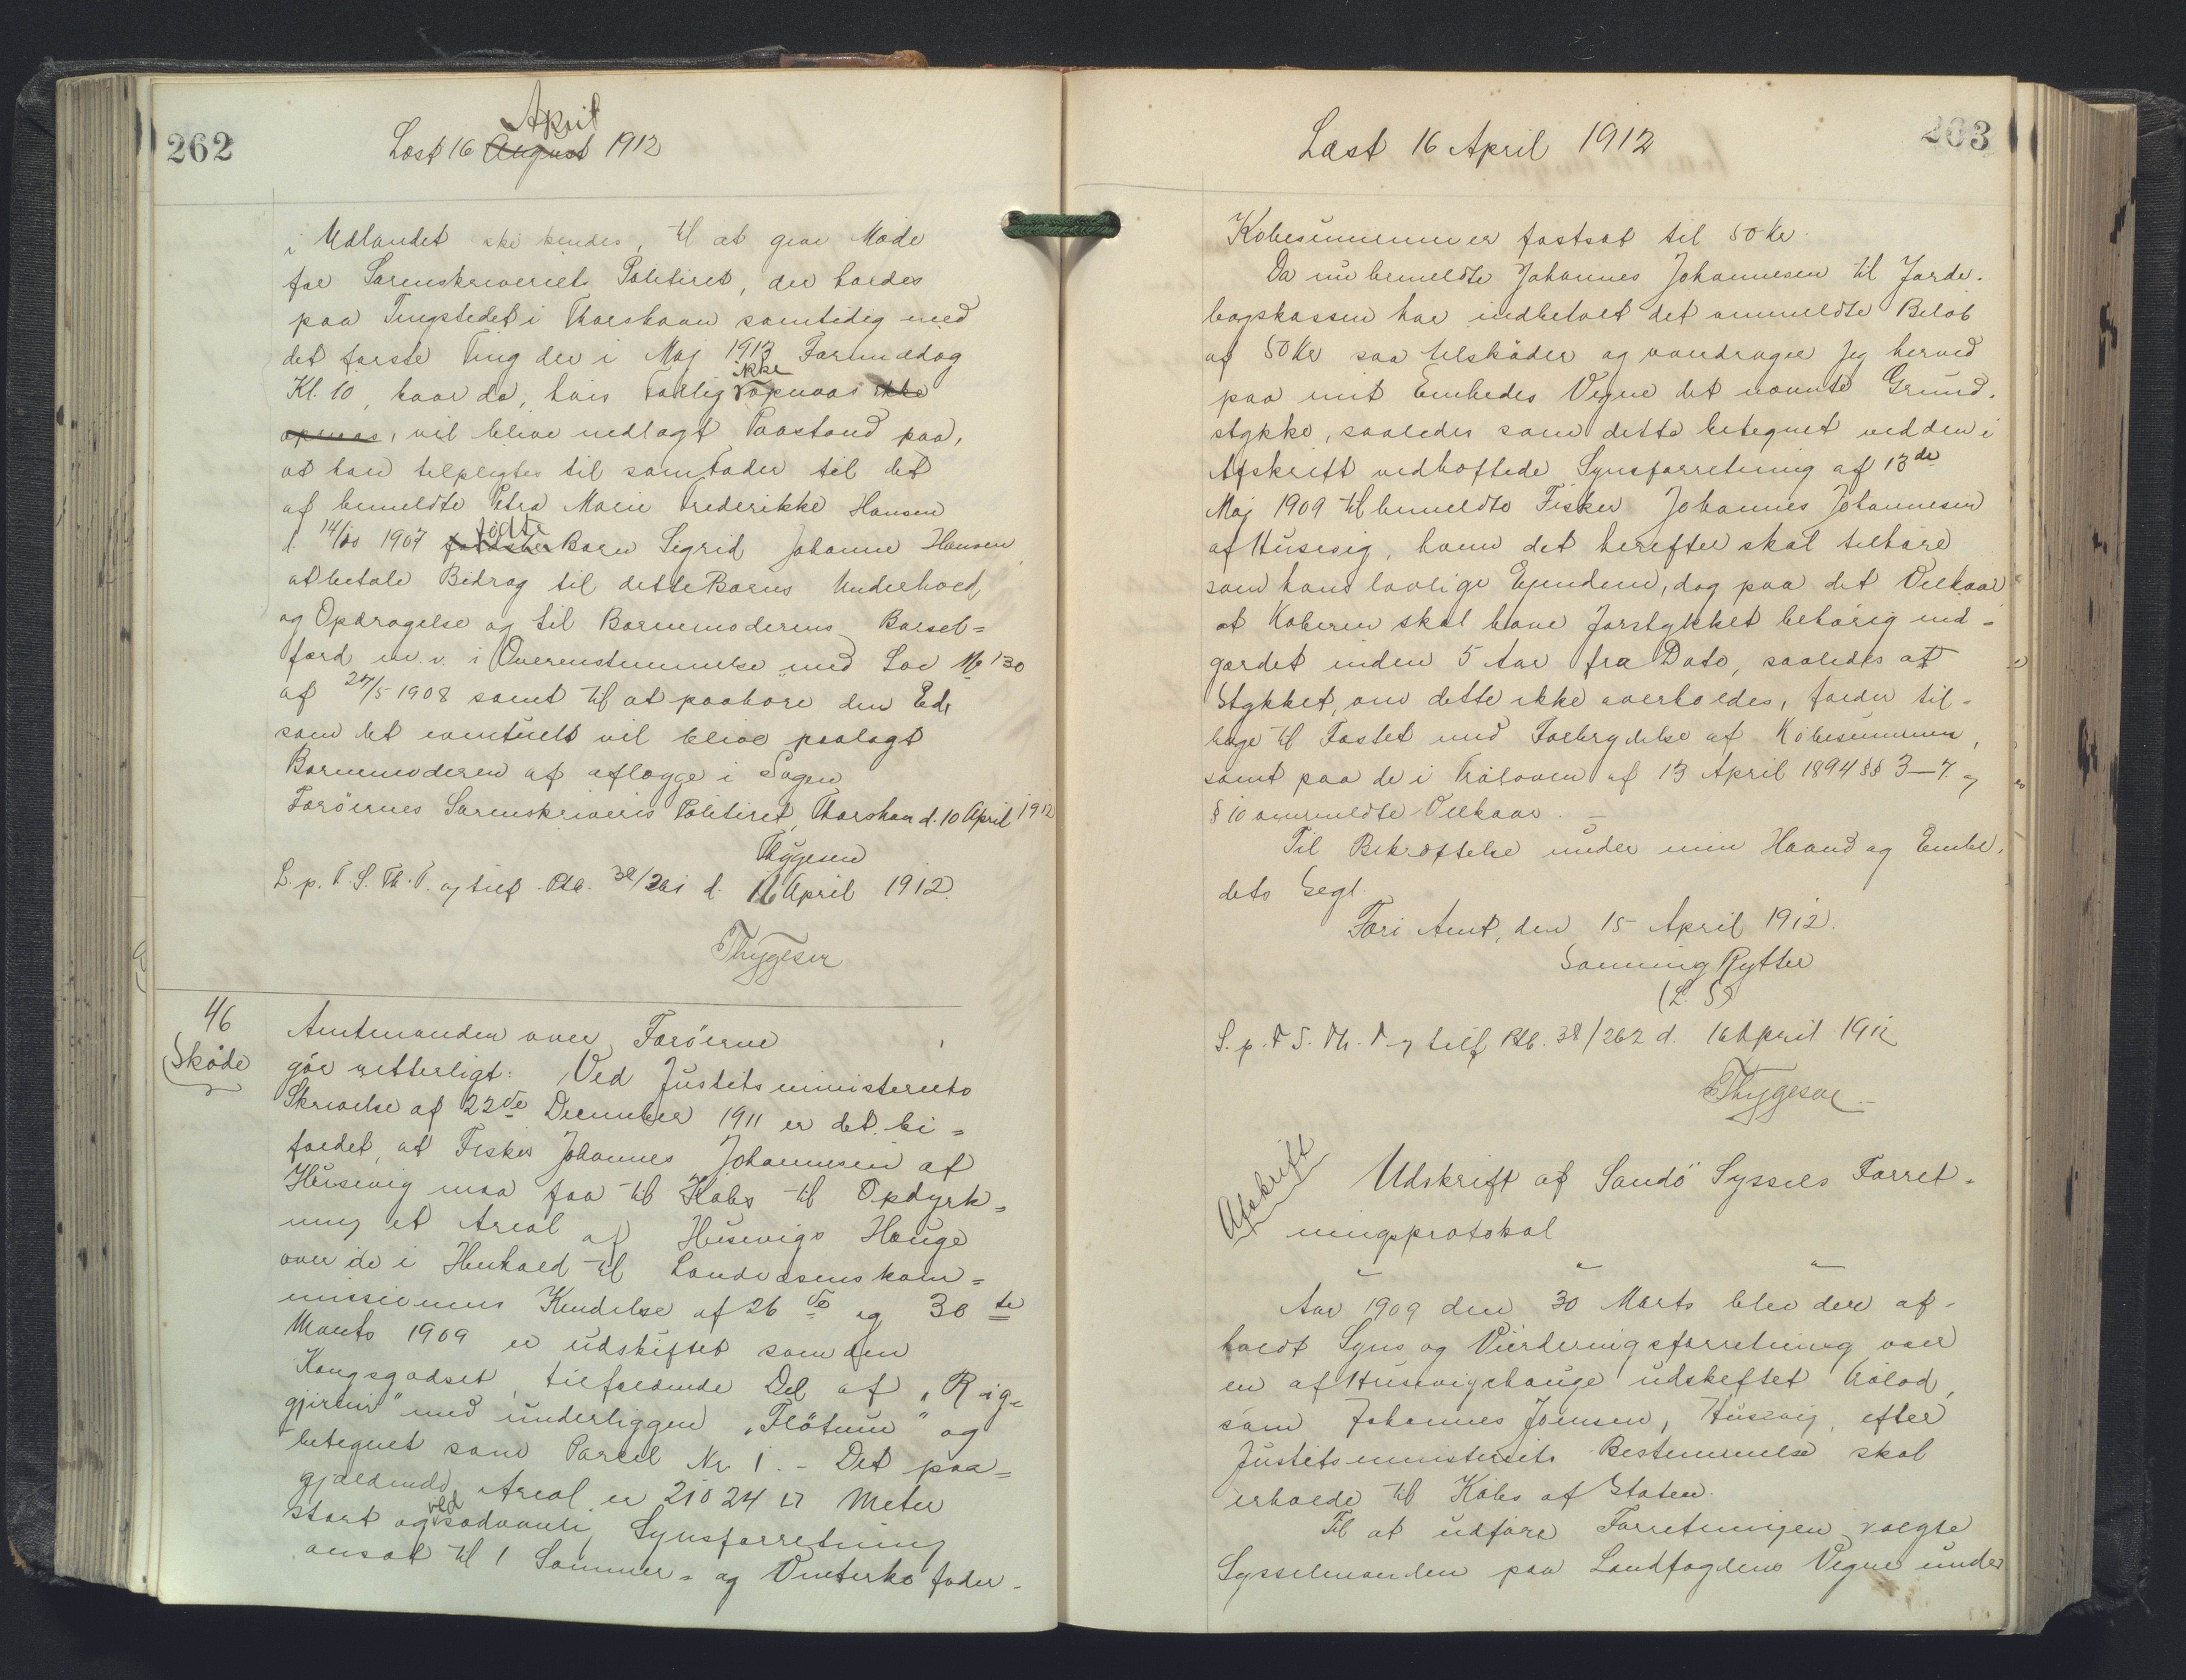 262
April
Læst 16 August 1912
i Udlandet skickendes, til at give Møde
for Sorenskriveriets Politiret, der holdes
paa Tingstedet i Thorshavn samtidig med
det første Ting der i Maj 1913 Formiddag
Kl. 10, hvor da, hvis Forlig ikke opnaas ikke
opnaas, vil blive nedlagt Paastand paa,
at han tilpligtes til som Fader til det
af bemeldte Petra Marie Frederikke Hansen
d. 14/10 1907 fødte Barn Sigrid Johanne Hansen
at betale Bidrag til dette Barns Underhold
og Opdragelse og til Barnemoderens Barsel=
færd m.v. i Overensstemmelse med Lov No 130
af 27/5 1908 samt til at paahøre den Ed,
som det eventuelt vil blive paalagt
Barnemoderen at aflægge i Sagen
Færöernes Sorenskriveris Politiret, Thorshavn d. 10 April 1912
Thygesen
L. p. F. S. Th. P. og tilf. Ptb. 38/261 d. 16 April 1912.
Thygesen
46
Sköde
Amtmanden over Færöerne
gör vitterligt: Ved Justitsministeriets
Skrivelse af 22de December 1911 er det bi=
faldet, at Fisker Johannes Johannesen af
Húsevig maa faa til Købs til Opdyrk=
ning et Areal af Húsevigs Hauge
over de i Henhold til Landvæsenskom=
missionens Kendelse af 26de og 30te
Marts 1909 er udskiftet som den
Kongsgodset tilfaldende Del af "Rig=
gjirnir" med underliggen "Flötum" og
betegnet som Parcel Nr. 1. - Det paa=
gjældende Areal er 21024 □ Meter
stort og ved sædvanli Synsforretning
ansat til 1 Sommer= og Vinterko foder-
263
Læst 16 April 1912
Købesummen er fastsat til 50 Kr.
Da nu bemeldte Johannes Johannesen til Jorde-
bogskassen har indbetalt det anmeldte Beløb
af 50 Kr saa tilskøder og overdrager jeg herved
paa mit Embedes Vegne det nævnte Grund-
stykke, saaledes som dette betegnet ved den i
Afskrift vedhæftede Synsforretning af 13de
Maj 1909 til bemeldte Fisker Johannes Johannesen
af Húsevig, hvem det herefter skal tilhøre
som hans lovlige Ejendom, dog paa det Vilkaar
at Køberen skal have Jorstykket behørig ind-
gærdet inden 5 Aar fra Dato, saaledes at
Stykket, om dette ikke overholdes, falder til-
bage til Fæstet med Forbrydelse af Købesummen,
samt paa de i Tråloven af 13 April 1894 §§ 3-7 og
§ 10 ommeldte Vilkaar. -
Til Bekræftelse under min Haand og Embe-
dets Segl.
Færö Amt, den 15 April 1912.
Svenning Rytter
(L. S)
L. p. F. S. Th. P. og tilf Ptb. 38/262 d. 16 April 1912
Thygesen
Afskrift
Udskrift af Sandö Syssels Forret-
ningsprotokol
Aar 1909 den 30 Marts blev der af-
holdt Syns og Vurderingsforretning over
en af Húsevigshauge udskiftet Trålod,
som Johannes Joensen, Húsevig, efter
Justitsministeriets Bestemmelse skal
erholde til Købs af Staten.
Til at udføre Forretningen valgte
Sysselmanden paa Landfogdens Vegne under